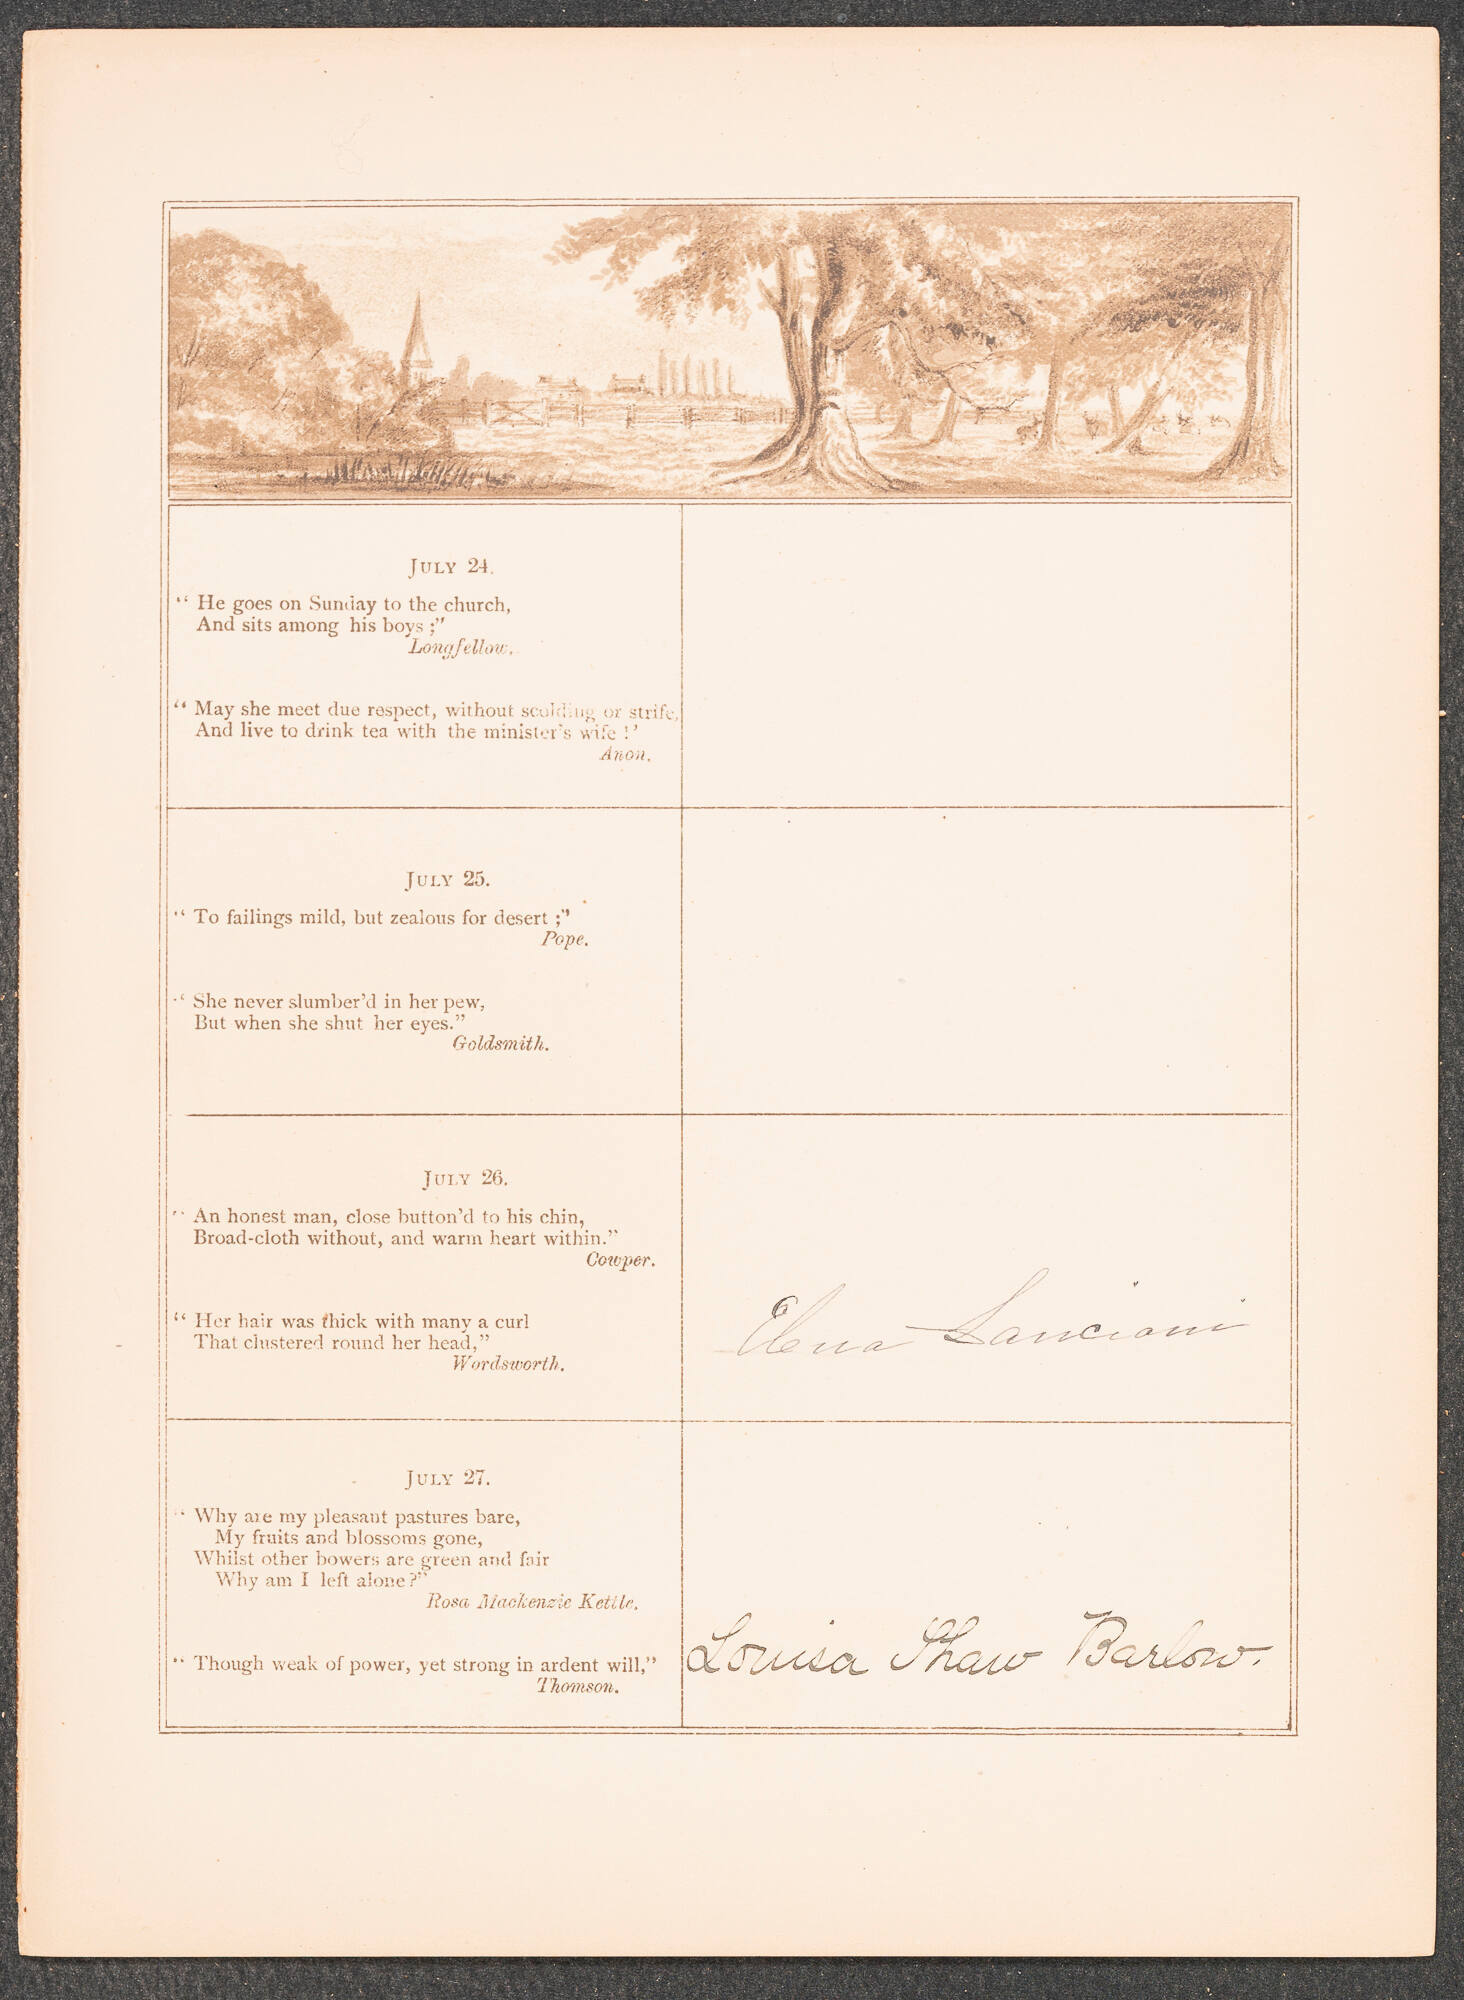 JULY 24.
“ He goes on Sunday to the church,
And sits among his boys ;”
Longfellow.
“ May she meet due respect, without scolding or strife,
And live to drink tea with the minister's wife !’
Anon.
JULY 25.
“ To failings mild, but zealous for desert ;”
Pope.
“ She never slumber'd in her pew,
But when she shut her eyes.”
Goldsmith.
JULY 26.
“ An honest man, close button'd to his chin,
Broad-cloth without, and warm heart within.”
Cowper.
“ Her hair was thick with many a curl
That clustered round her head,”
Wordsworth.
Elena Lanciani
JULY 27.
“ Why are my pleasant pastures bare,
My fruits and blossoms gone,
Whilst other bowers are green and fair
Why am I left alone ?”
Rosa Mackenzie Kettle.
“ Though weak of power, yet strong in ardent will,”
Thomson.
Louisa Shaw Barlow.